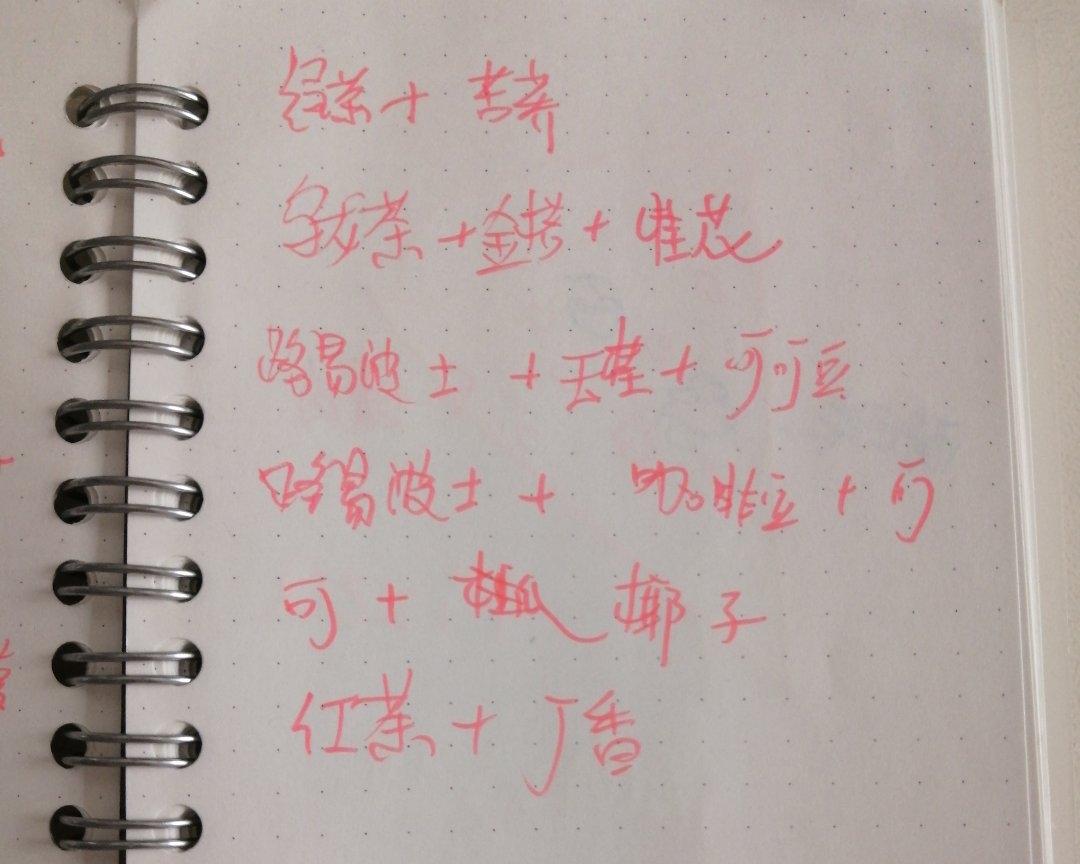 绿茶 + 苦荞
乌龙茶 + 金桔 + 桂花
路易波士 + 玉桂 + 可可豆
路易波士 + 咖啡豆 + 可
可 + 椰子
红茶 + 丁香